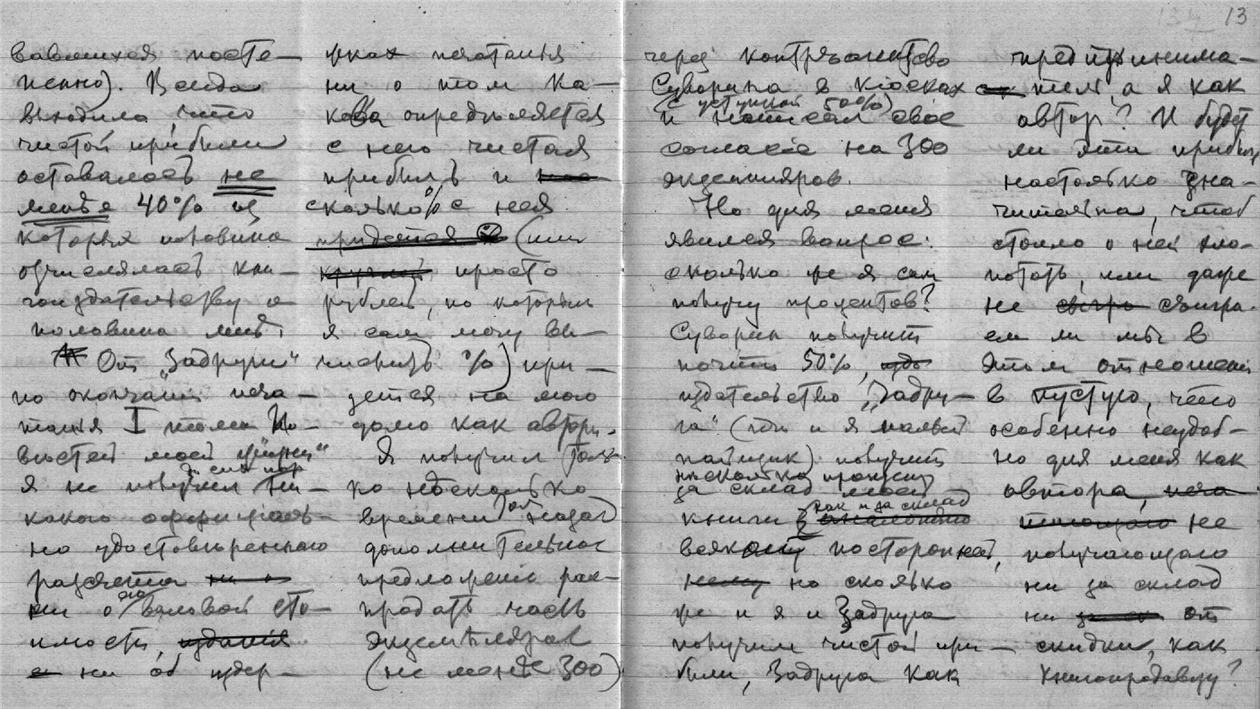 13
вавшихся посте-
пенно). Всегда
выходило, что
чистой прибыли
оставалось не
менѣе 40% из
которыя половина
отчислялась кни-
гоиздательству а
половина мнѣ.
От „Задруги"
по окончании печа-
танія I тома По-
вѣстей моей жизни"
я не получил до сих пор ни-
какого оффиціаль-
но удостовѣреннаго
разсчета
ни о его валовой сто-
имости, изданія
ни об издер-
жках печатанія
ни о том ка-
кова опредѣляется
с него чистая
прибыль и
сколько % с нея
придется (или
просто
рублей, по которым
я сам могу вы-
числить %) при-
дется на мою
долю как автора.
Я получил толь-
ко нѣсколько
времени тому назад
дополнительное
предложеніе рас-
продать часть
экземпляров
(не менѣе 300)
через контрагентство
Суворина в кіосках
(с уступкой 50%)
и написал свое
согласіе на 300
экземпляров.
Но для меня
явился вопрос:
сколько же я сам
получу процентов?
Суворин получит
почти 50%,
издательство „Задру-
га" (где и я пайщик) получит
нѣсколько процентов
за склад моей
книги как и за склад
всякой посторонней,
но сколько
же и я и Задруга
получим чистой при-
были, Задруга как
предприни­ма-
тель, а я как
автор? И будут
ли эти прибыли
настолько зна-
чительны, чтоб
стоило о ней хло-
потать, или даже
не сыграем ли мы в
этом отношении
в пустую, что
особенно неудоб-
но для меня как
автора, не
получающаго
ни за склад
ни от
скидки, как
книгопродавцу?